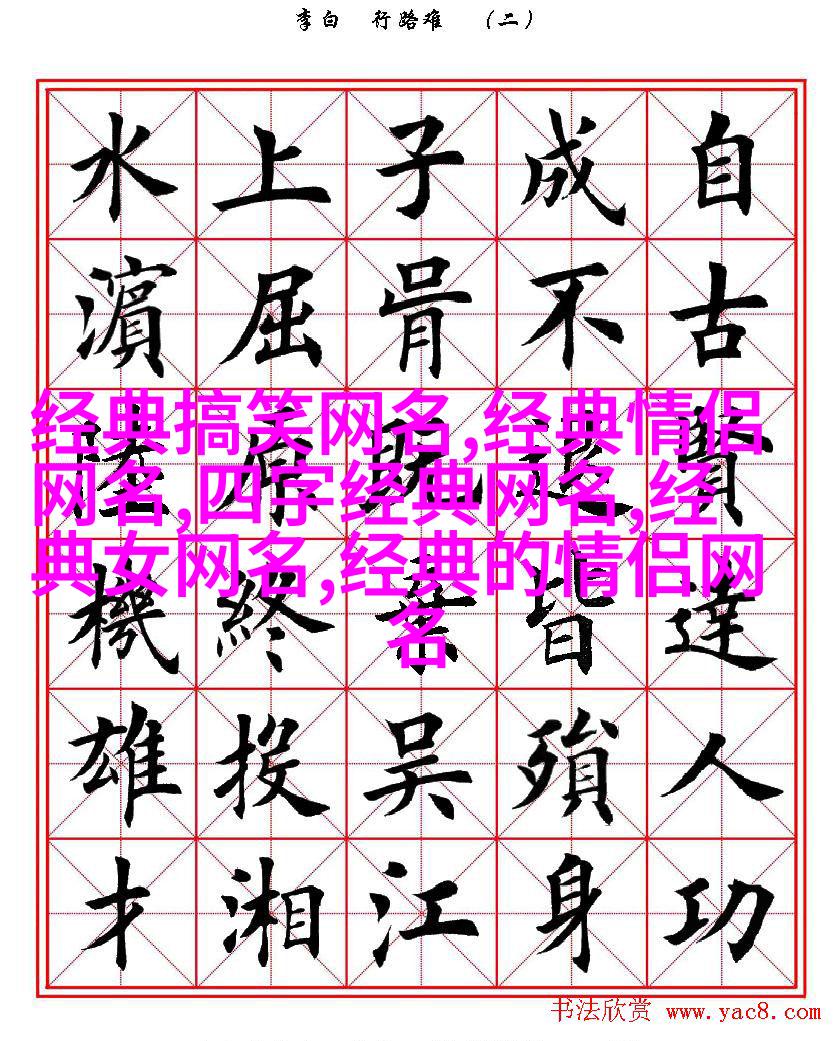 李白 行路难 （二）
自古賢達人功
成不退皆殞身
子胥既棄吳江
上屈原終投湘
水濱陸機雄才
经典搞笑网名,经典情侣
网名,四字经典网名,经
典女网名,经典的情侣网
名
书法欣赏 www.yac8.com